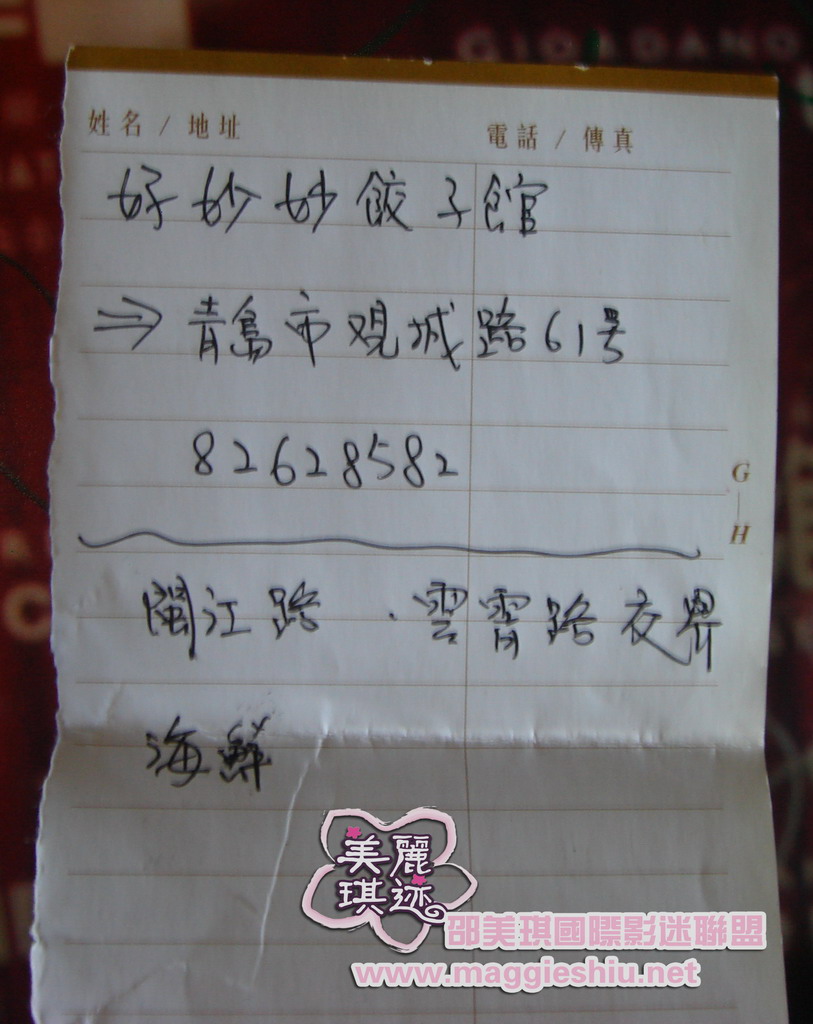 GIORDANO
姓名 / 地址
電話 / 傳真
好妙妙餃子館
⇒ 青島市观城路61号
82628582
G
H
閩江路 . 雲霄路夜
海鮮
美麗
琪迹
邵美琪國際影迷聯盟
www.maggieshiu.net